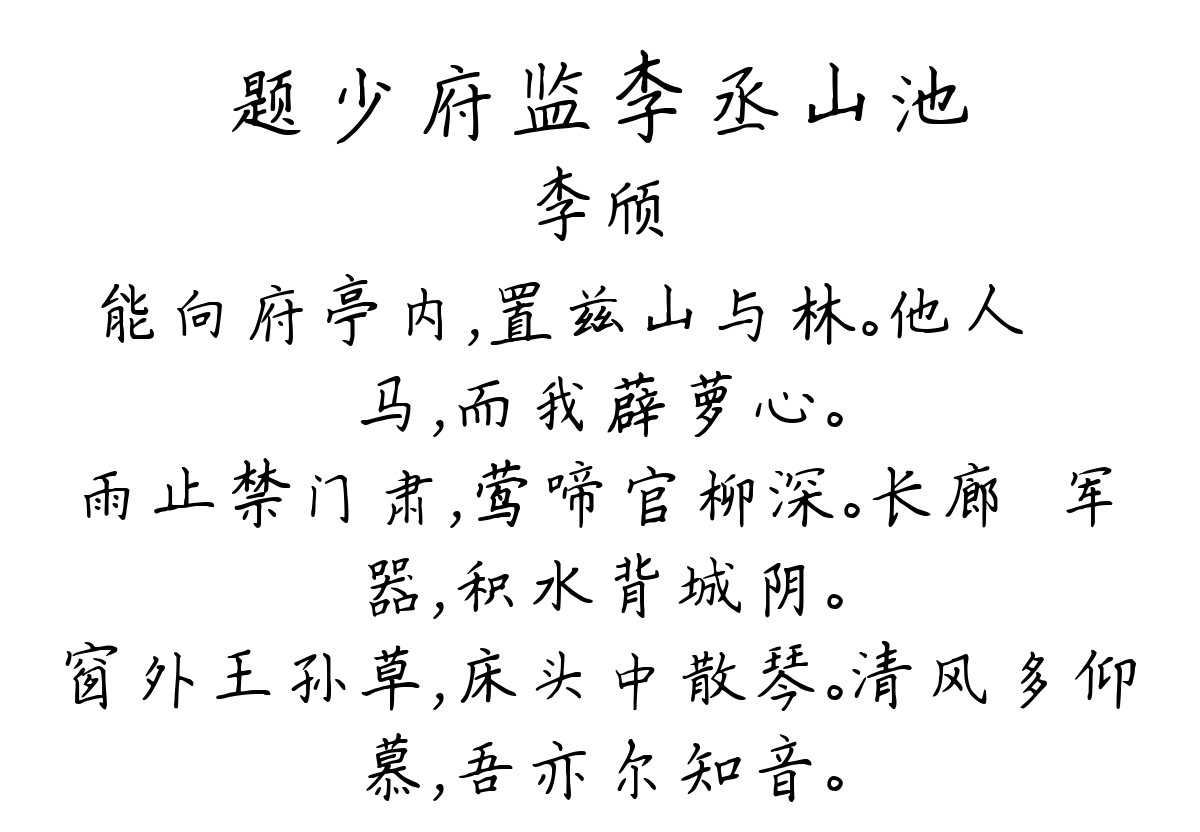 题少府监李丞山池
李颀
能向府亭内,置兹山与林。他人
马,而我薜萝心。
雨止禁门肃,莺啼官柳深。长廊 军
器,积水背城阴。
窗外王孙草,床头中散琴。清风多仰
慕,吾亦尔知音。